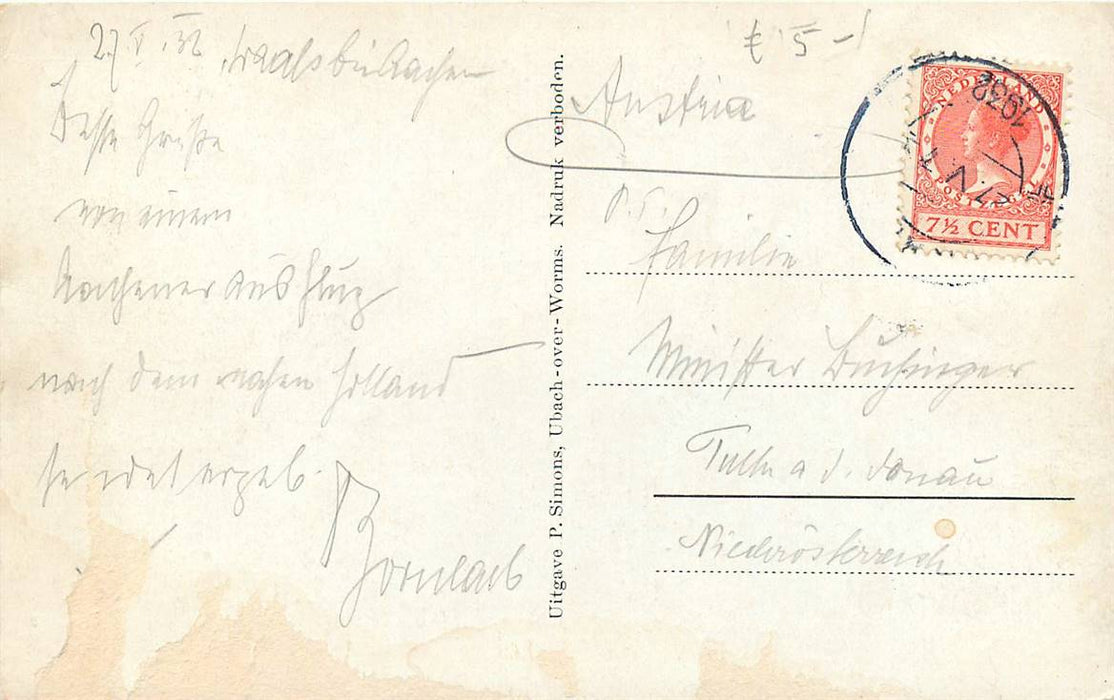 27 V. 32 Vaals bei Aachen
Beste Grüße
von einem
Aachener Ausflug
nach dem nahen Holland
sendet ergeb.
Uitgave P. Simons, Ubach-over-Worms. Nadruk verboden.
€ 5 -
Austria
NEDERLAND
POSTZEGEL
7½ CENT
1932
P. T.
Familie
Minister Buchinger
Tulln a. d. Donau
Niederösterreich